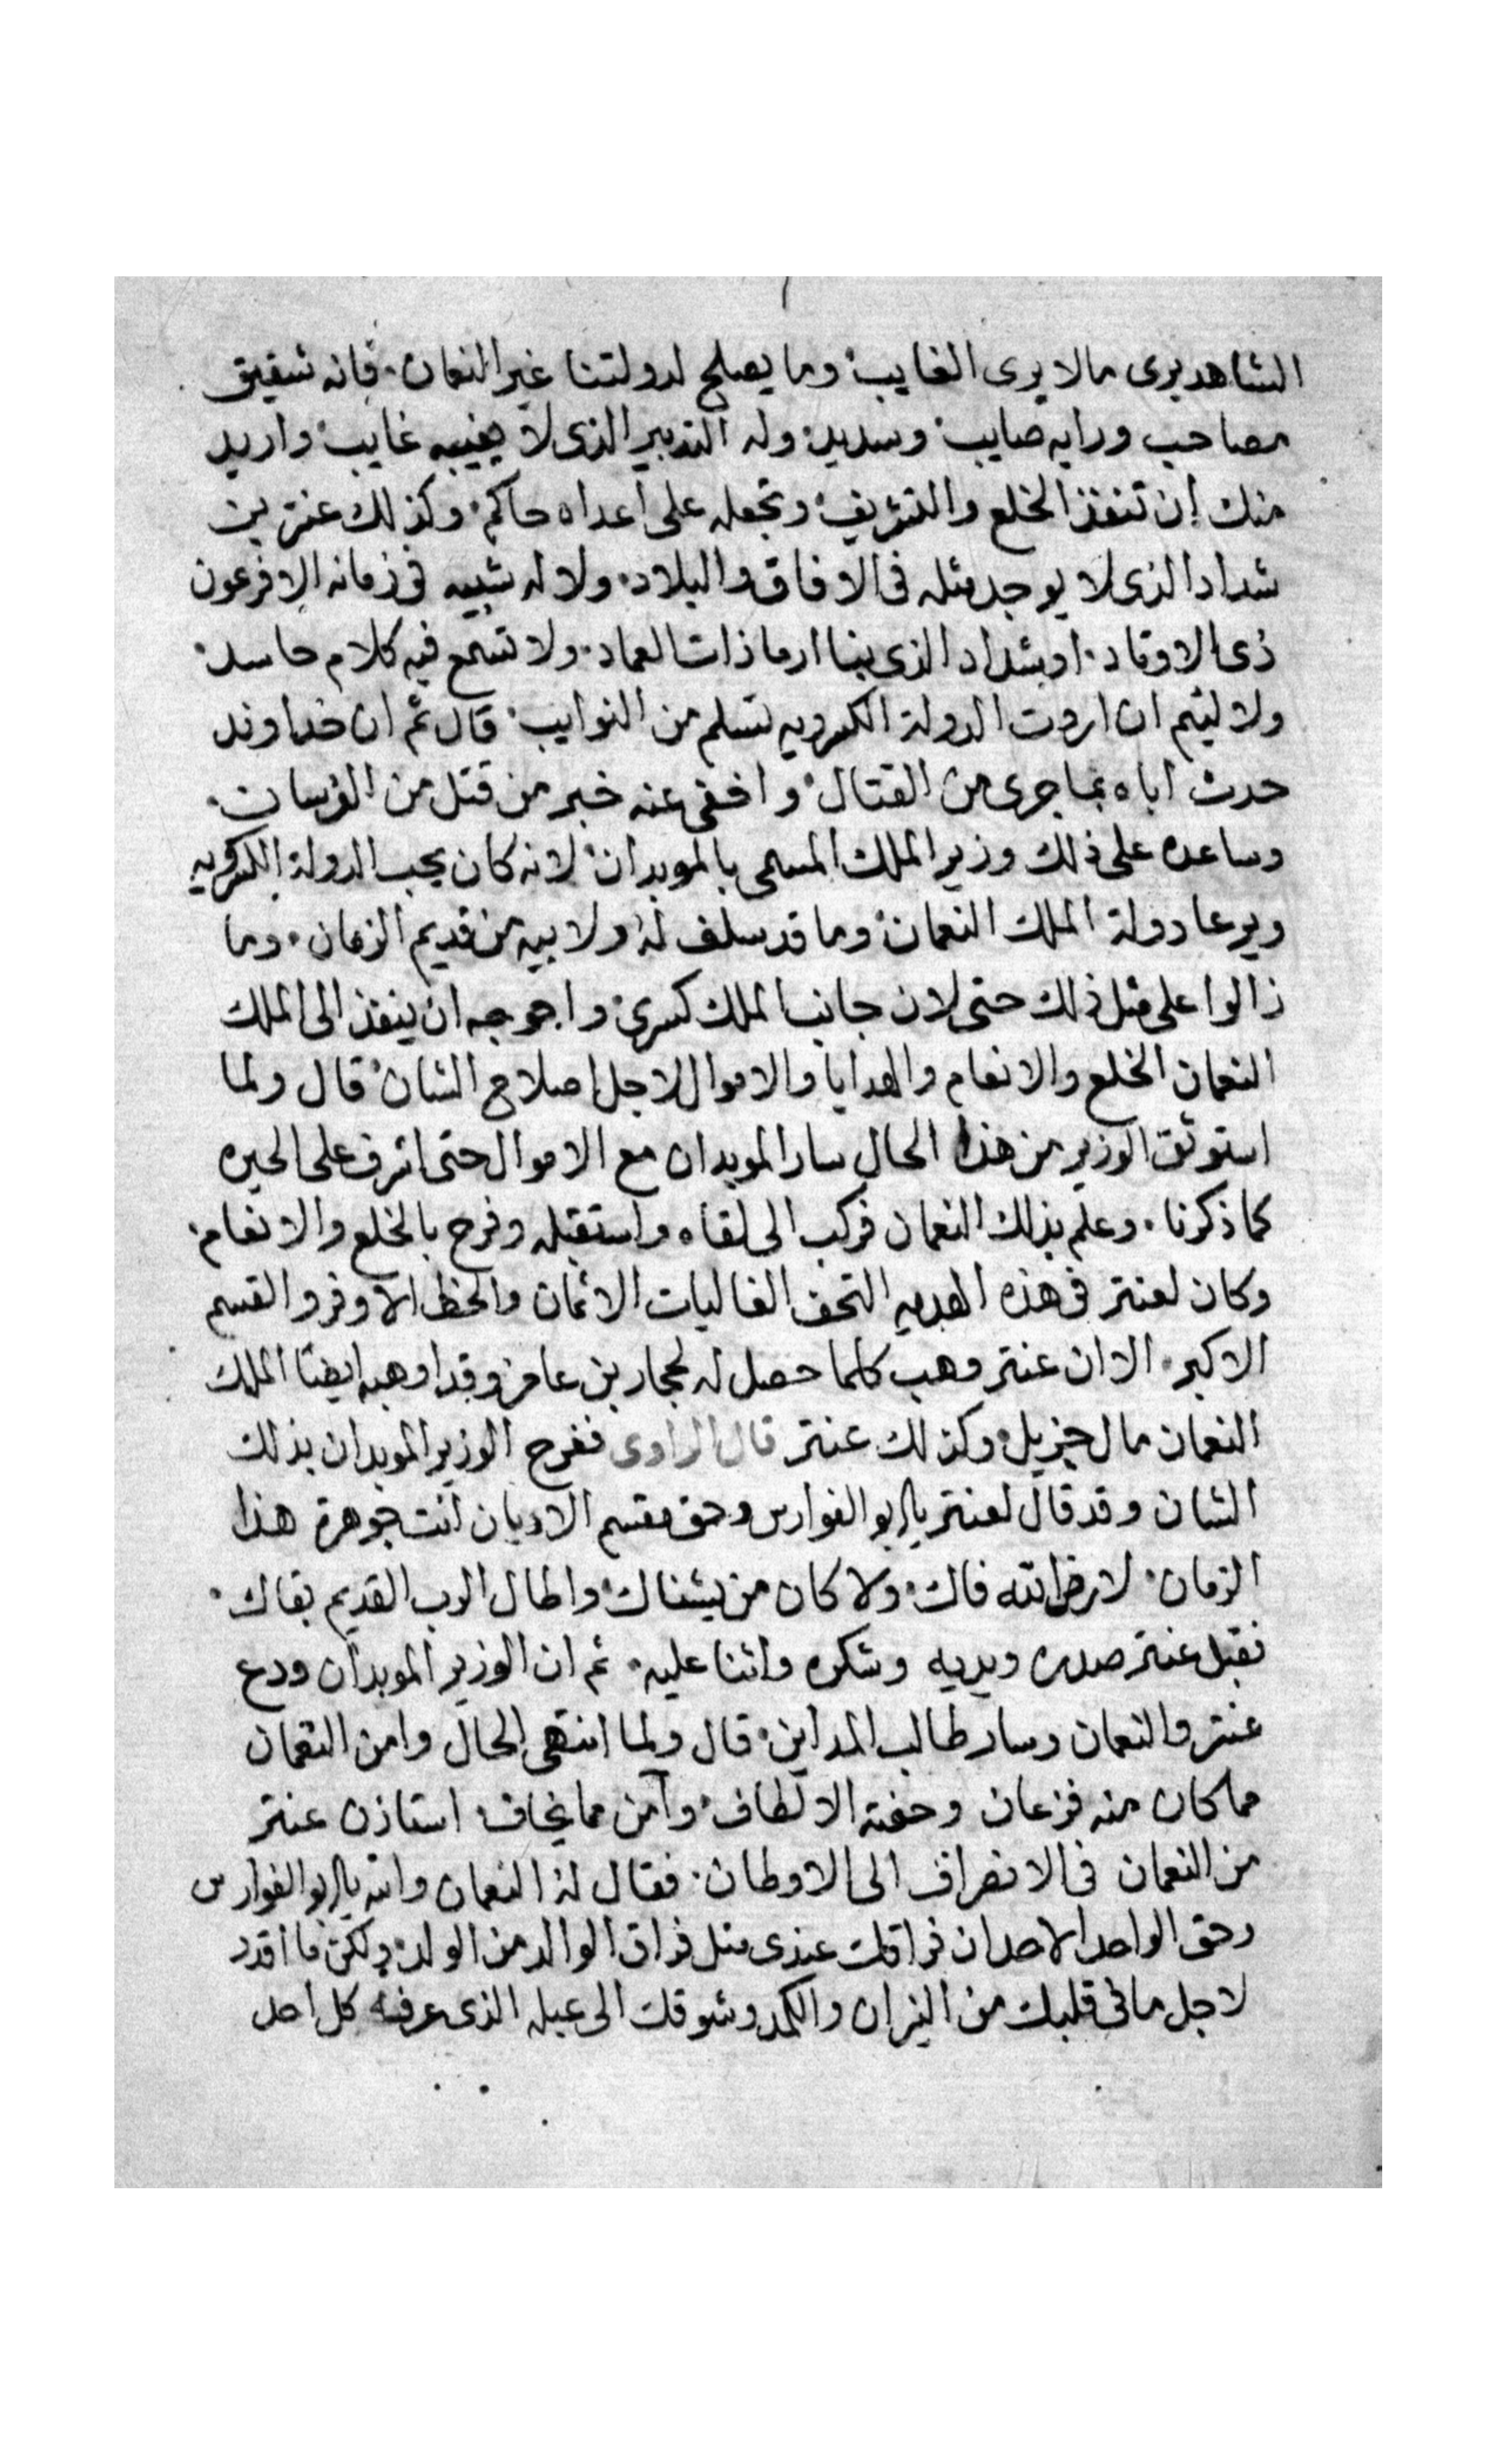 الشاهد يرى مالا يرى الغايب وما يصلح لدولتنا غير النعمان فانه شفيق
مصاحب ورايه صايب وسديد وله التدبير الذى لا يغيبه غايب واريد
منك ان تنفذ الخلع والتشريف وتجعله على اعداه حاكم وكذلك عنتر بن
شداد الذى لا يوجد مثله فى الافاق والبلاد ولا له شبيه فى زمانه الا فرعون
ذى الاوتاد او شداد الذى بنا ارما ذات العماد ولا تسمع فيه كلام حاسد
ولا ليئم ان اردت الدولة الكسرويه تسلم من النوايب قال ثم ان خداوند
حدث اباه بما جرى من القتال واخفى عنه خبر من قتل من الفرسان
وساعده على ذلك وزير الملك المسمى بالموبدان لانه كان يحب الدولة الكسرويه
ويرعا دولة الملك النعمان وما قد سلف له ولابيه من قديم الزمان وما
زالوا على مثل ذلك حتى لان جانب الملك كسرى واحوجه ان ينفذ الى الملك
النعمان الخلع والانعام والهدايا والاموال لاجل اصلاح الشان قال ولما
استوثق الوزير من هذا الحال سار الموبدان مع الاموال حتى اشرف على الحيره
كما ذكرنا وعلم بذلك النعمان فركب الى لقاه واستقبله وفرح بالخلع والانعام
وكان لعنتر فى هذه الهديه التحف الغاليات الاثمان والحظ الاوفر والقسم
الاكبر الا ان عنتر وهب كلما حصل له لحجار بن عامر وقد اوهبه ايضا الملك
النعمان مال جزيل وكذلك عنتر قال الراوى ففرح الوزير الموبدان بذلك
الشان وقد قال لعنتر يا ابو الفوارس وحق مقسم الاديان انت جوهرة هذا
الزمان لا رض الله فاك ولا كان من يشناك واطال الرب القديم بقاك
فقبل عنتر صدره ويديه وشكره واثنا عليه ثم ان الوزير الموبدان ودع
عنتر والنعمان وسار طالب المداين قال ولما انتهى الحال وامن النعمان
مما كان منه فزعان وحفته الالطاف وآمن مما يخاف استاذن عنتر
من النعمان فى الانصراف الى الاوطان فقال له النعمان والله يا ابو الفوارس
وحق الواحد الاحد ان فراقك عندى مثل فراق الوالد من الولد ولكن ما اقدر
لاجل مافى قلبك من النيران والكمد وشوقك الى عبله الذى عرفه كل احد